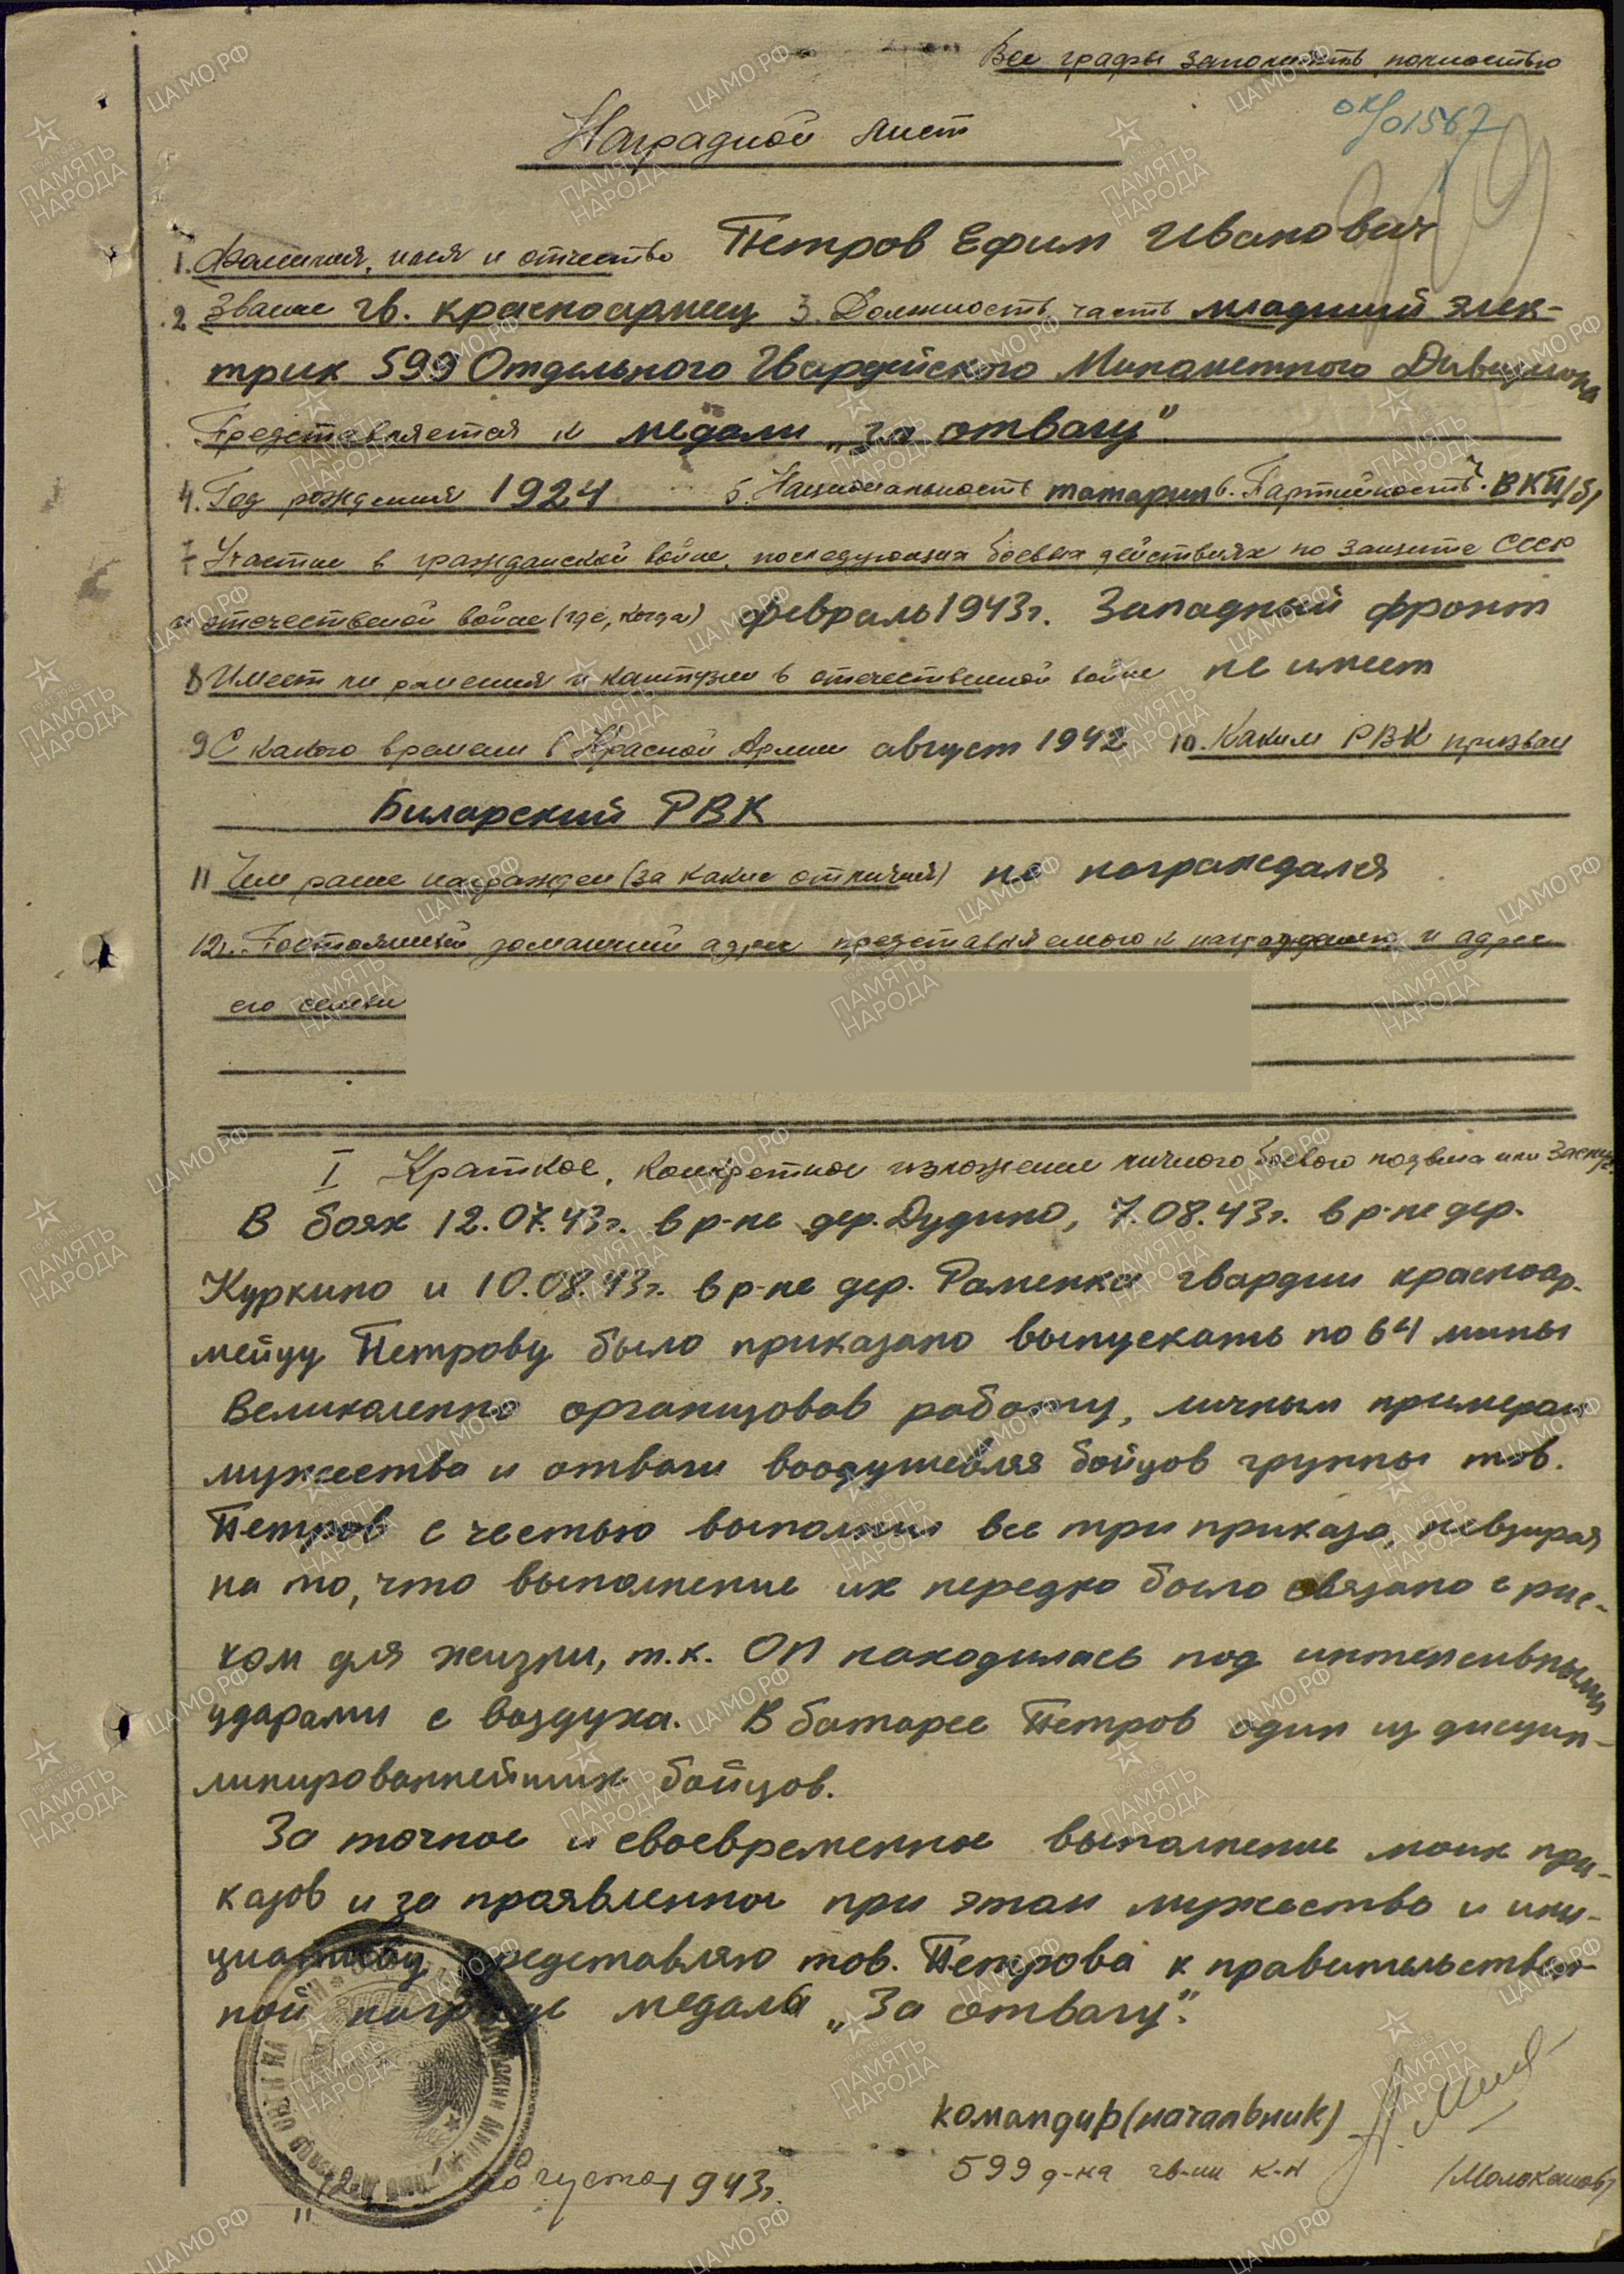 Все графы заполнять полностью
Наградной лист
1. Фамилия, имя и отчество Петров Ефим Иванович
2 Звание гв. красноармеец 3. Должность, часть младший элек-
трик 599 Отдельного Гвардейского Минометного Дивизиона
Представляется к медали „За отвагу"
4. Год рождения 1924 5. Национальность татарин 6. Партийность ВКП(б)
7 Участие в гражданской войне, последующих боевых действиях по защите СССР
и отечественной войне (где, когда) февраль 1943 г. Западный фронт
8 Имеет ли ранения и контузии в отечественной войне не имеет
9 С какого времени в Красной Армии август 1942 10. Каким РВК призван
Билярский РВК
11 Чем ранее награжден (за какие отличия) не награждался
12. Постоянный домашний адрес представляемого к награждению и адрес
его семьи
I Краткое, конкретное изложение личного боевого подвига или заслуг.
В боях 12.07.43г. в р-не дер. Дудино, 7.08.43г. в р-не дер.
Куркино и 10.08.43г. в р-не дер. Раменка гвардии красноар-
мейцу Петрову было приказано выпускать по 64 мины
Великолепно организовав работу, личным примером
мужества и отваги воодушевляя бойцов группы тов.
Петров с честью выполнил все три приказа, невзирая
на то, что выполнение их нередко было связано с рис-
ком для жизни, т.к. ОП находилась под интенсивными
ударами с воздуха. В батарее Петров один из дисцип-
линированнейших бойцов.
За точное и своевременное выполнение моих при-
казов и за проявленное при этом мужество и ини-
циативу представляю тов. Петрова к правительствен-
ной награде медаль „За отвагу".
командир (начальник)
599 д-на гв-ии к-н /Молоканов/
„12" августа 1943г.
ЦАМО РФ
ПАМЯТЬ НАРОДА
1941-1945